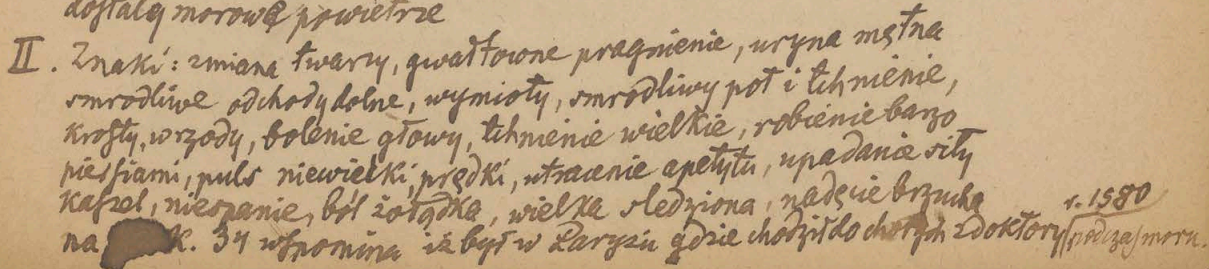 dostaley morowe powietrze
II. Znaki: zmiana twarzy, gwałtowne pragnienie, uryna mętna
smrodliwe odchody dolne, wymioty, smrodliwy pot i tchnienie,
krosty, wrzody, bolenie głowy, tchnienie wielkie, robienie barzo
piersiami, puls niewielki, prędki, utracenie apetytu, upadanie siły
kaszel, niespanie, ból żołądka, wielka sledziona, nadęcie brzucha
r. 1580
na k. 34 wspomina iż był w Paryżu gdzie chodził do chorych z doktory podczas moru.